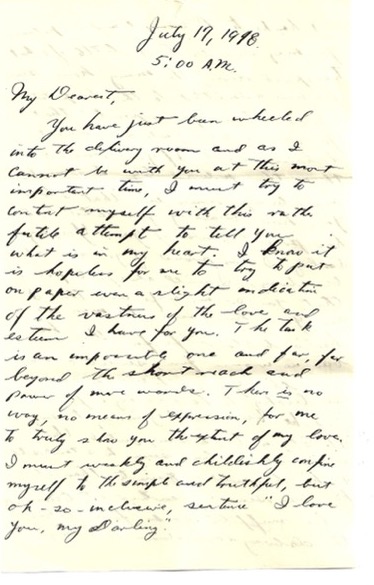 July 19, 1948
5:00 A.M.
My Dearest,
You have just been wheeled
into the delivery room and as I
cannot be with you at this most
important time, I must try to
content myself with this rather
futile attempt to tell you
what is in my heart. I know it
is hopeless for me to try to put
on paper even a slight indication
of the vastness of the love and
esteem I have for you. The task
is an impossible one and far, far
beyond the short reach and
power of mere words. There is no
way, no means of expression, for me
to truly show you the extent of my love.
I must weakly and childishly confine
myself to the simple and truthful, but
oh-so-inclusive, sentence "I love
you, my Darling"